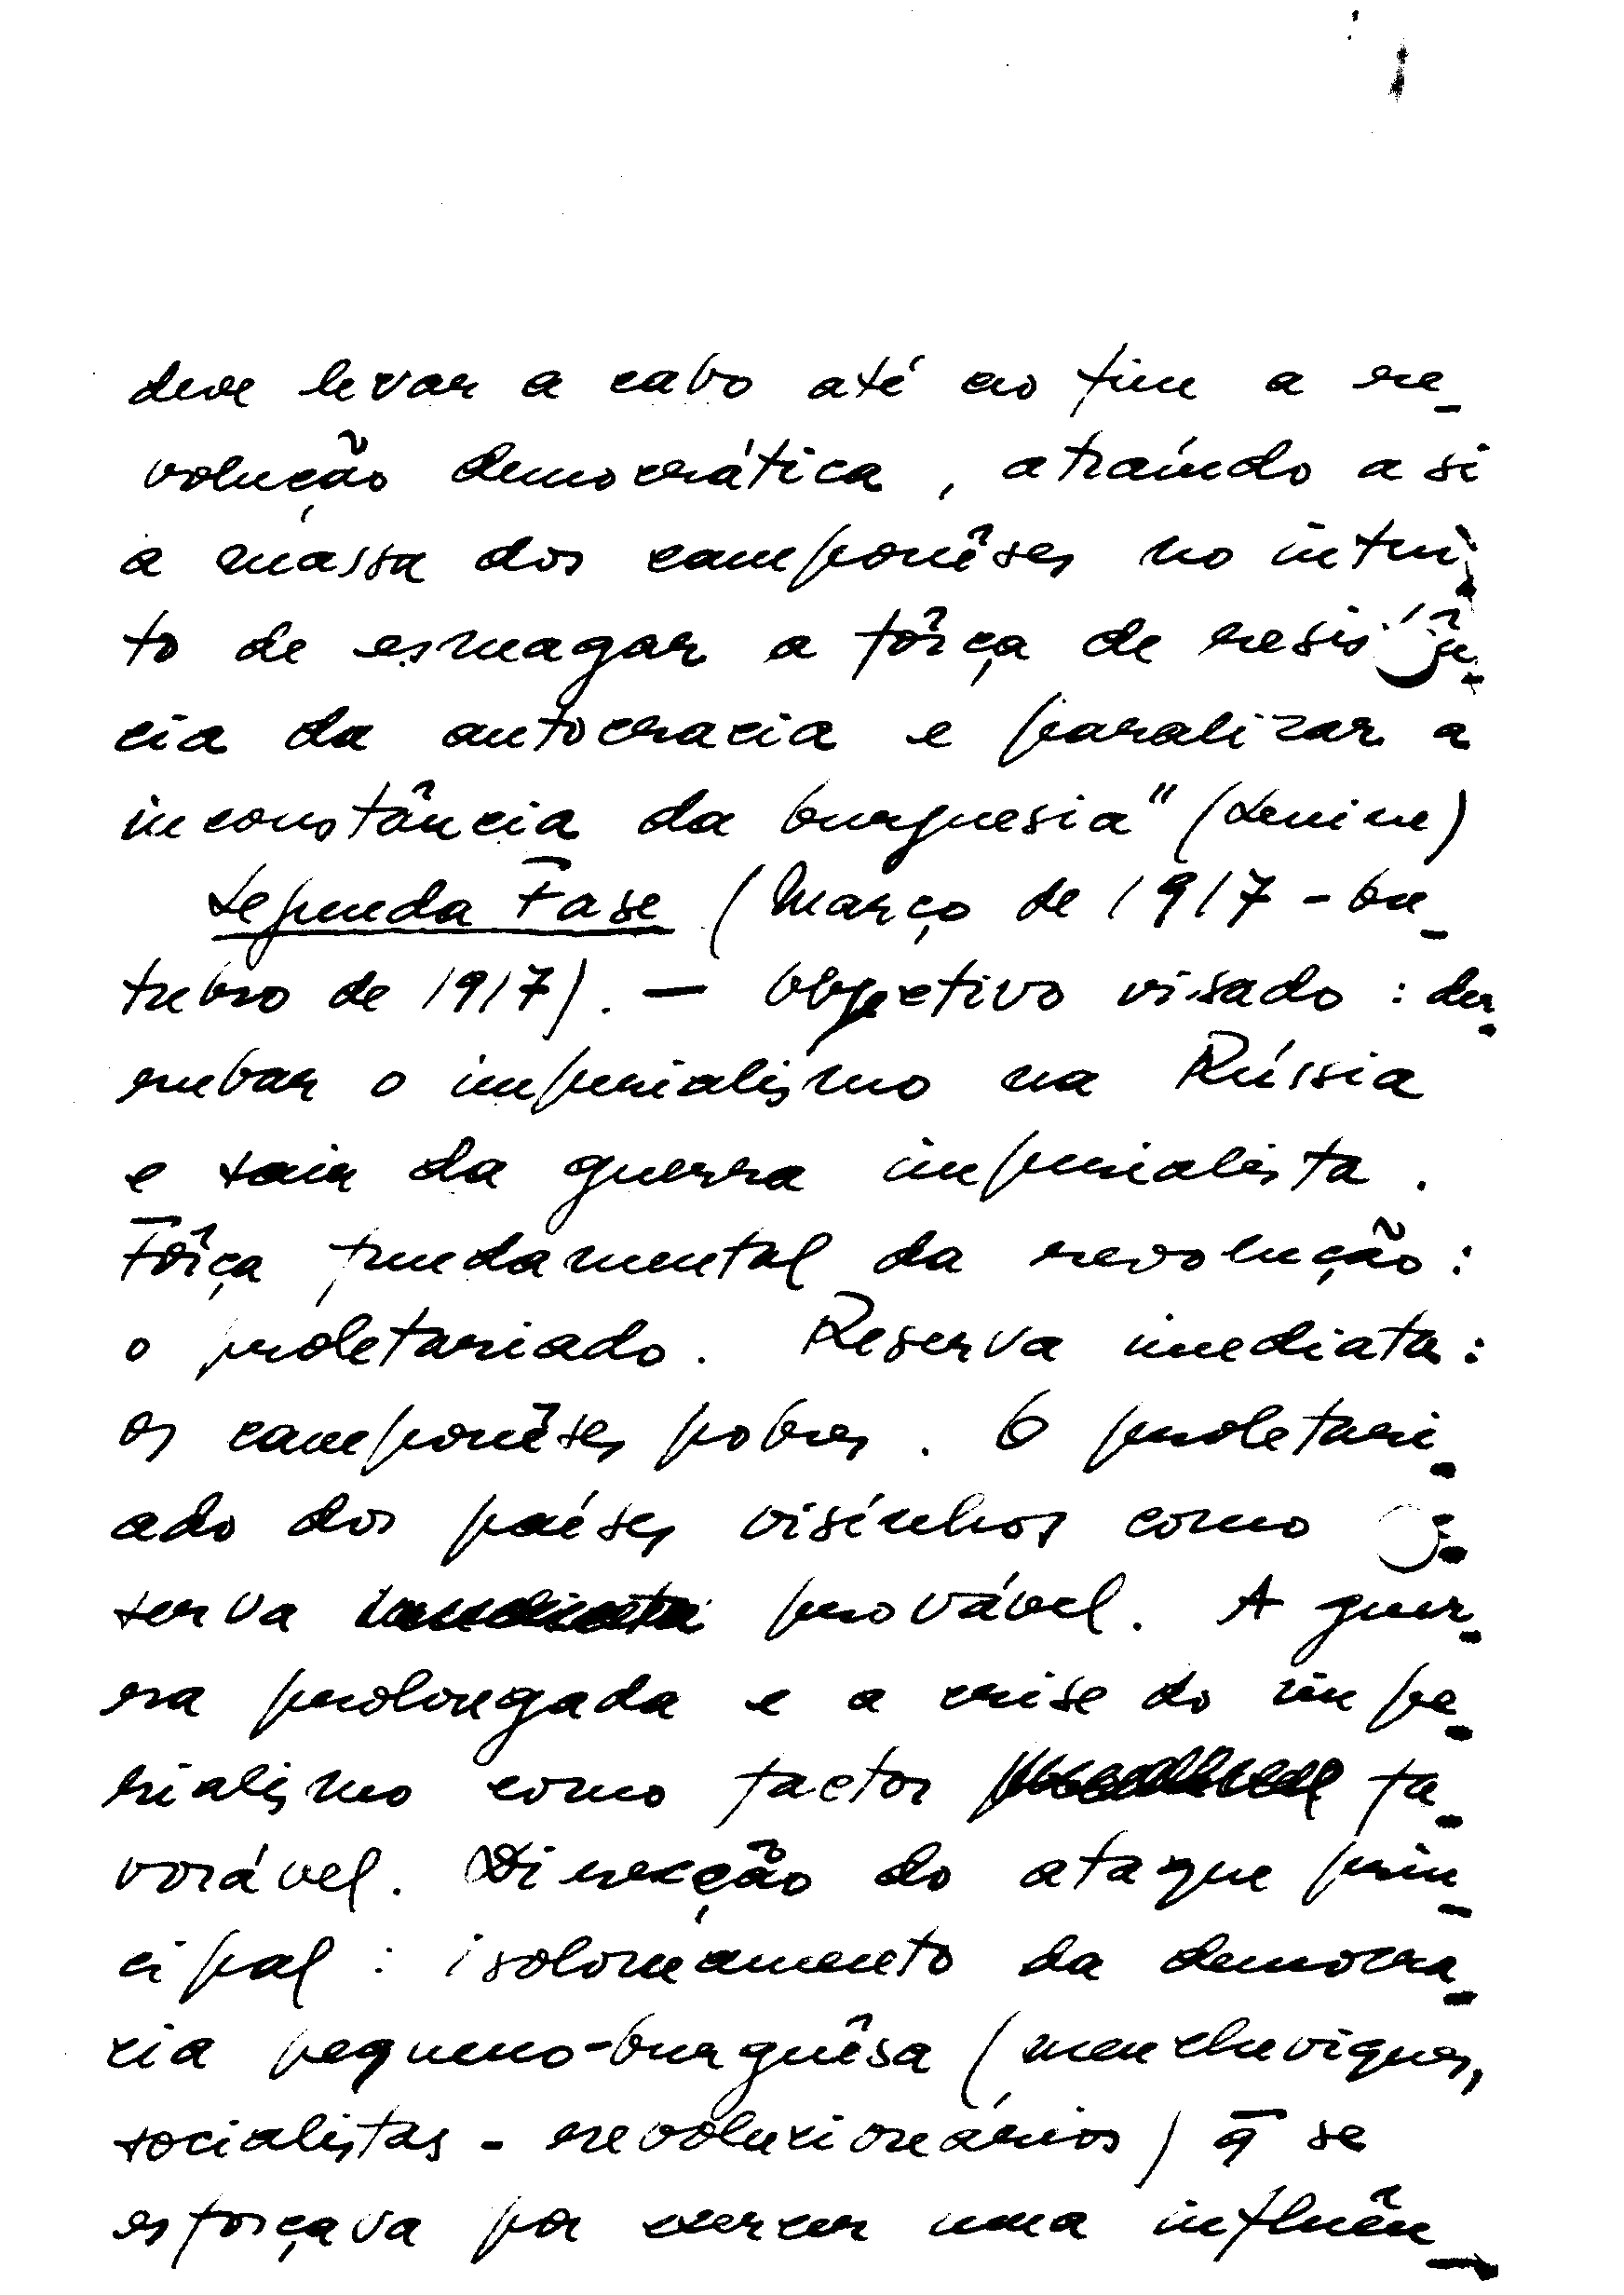 deve levar a cabo até ao fim a re-
volução democrática, atraíndo a si
a massa dos camponêses no intui-
to de esmagar a fôrça de resis
cia da autocracia e paralizar a
inconstância da burguesia" (Lenine)
Segunda Fase (Março de 1917 - Ou-
tubro de 1917). — Objetivo visado : der-
rubar o imperialismo na Rússia
e sair da guerra imperialista .
Fôrça fundamental da revolução :
o proletariado. Reserva imediata :
os camponêses pobres . O proletari-
ado dos países visínhos como
serva provável. A guer-
ra prolongada e a crise do impe-
rialismo como factor fa-
vorável. Direcção do ataque prin-
cipal : isolonamento da democra-
cia pequeno-burguêsa (mencheviques,
socialistas - revolucionários) q̄ se
esforçava por exercer uma influên-